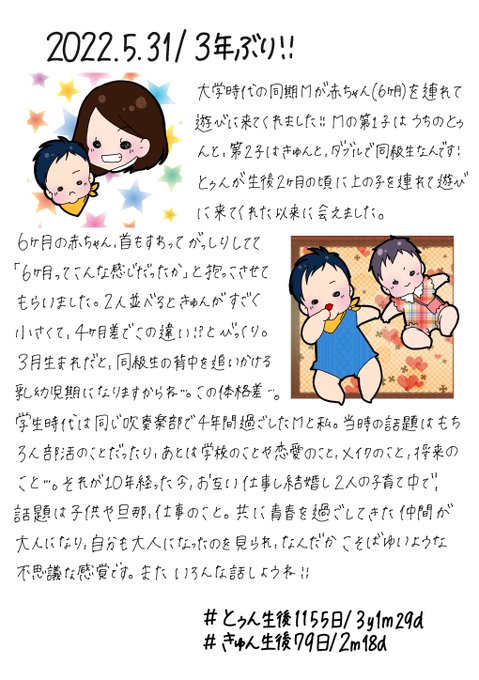 2022.5.31/3年ぶり!!
大学時代の同期Mが赤ちゃん(6ヶ月)を連れて
遊びに来てくれました!! Mの第1子はうちのとぅ
んと,第2子はきゅんと,ダブルで同級生なんです!
とぅんが生後2ヶ月の頃に上の子を連れて遊び
に来てくれた以来に会えました。
6ヶ月の赤ちゃん,首もすわってがっしりしてて
「6ヶ月ってこんな感じだったか」と抱っこさせて
もらいました。2人並べるときゅんがすごく
小さくて,4ヶ月差でこの違い!?とびっくり。
3月生まれだと,同級生の背中を追いかける
乳幼児期になりますからね…。この体格差…。
学生時代は同じ吹奏楽部で4年間過ごしたMと私。当時の話題はもち
ろん部活のことだったり,あとは学校のことや恋愛のこと,メイクのこと,将来の
こと…。それが10年経った今,お互い仕事し結婚し2人の子育て中で,
話題は子供や旦那,仕事のこと。共に青春を過ごしてきた仲間が
大人になり,自分も大人になったのを見られ,なんだかこそばゆいような
不思議な感覚です。またいろんな話しようね!!
#とぅん生後1155日/3y1m29d
#きゅん生後79日/2m18d